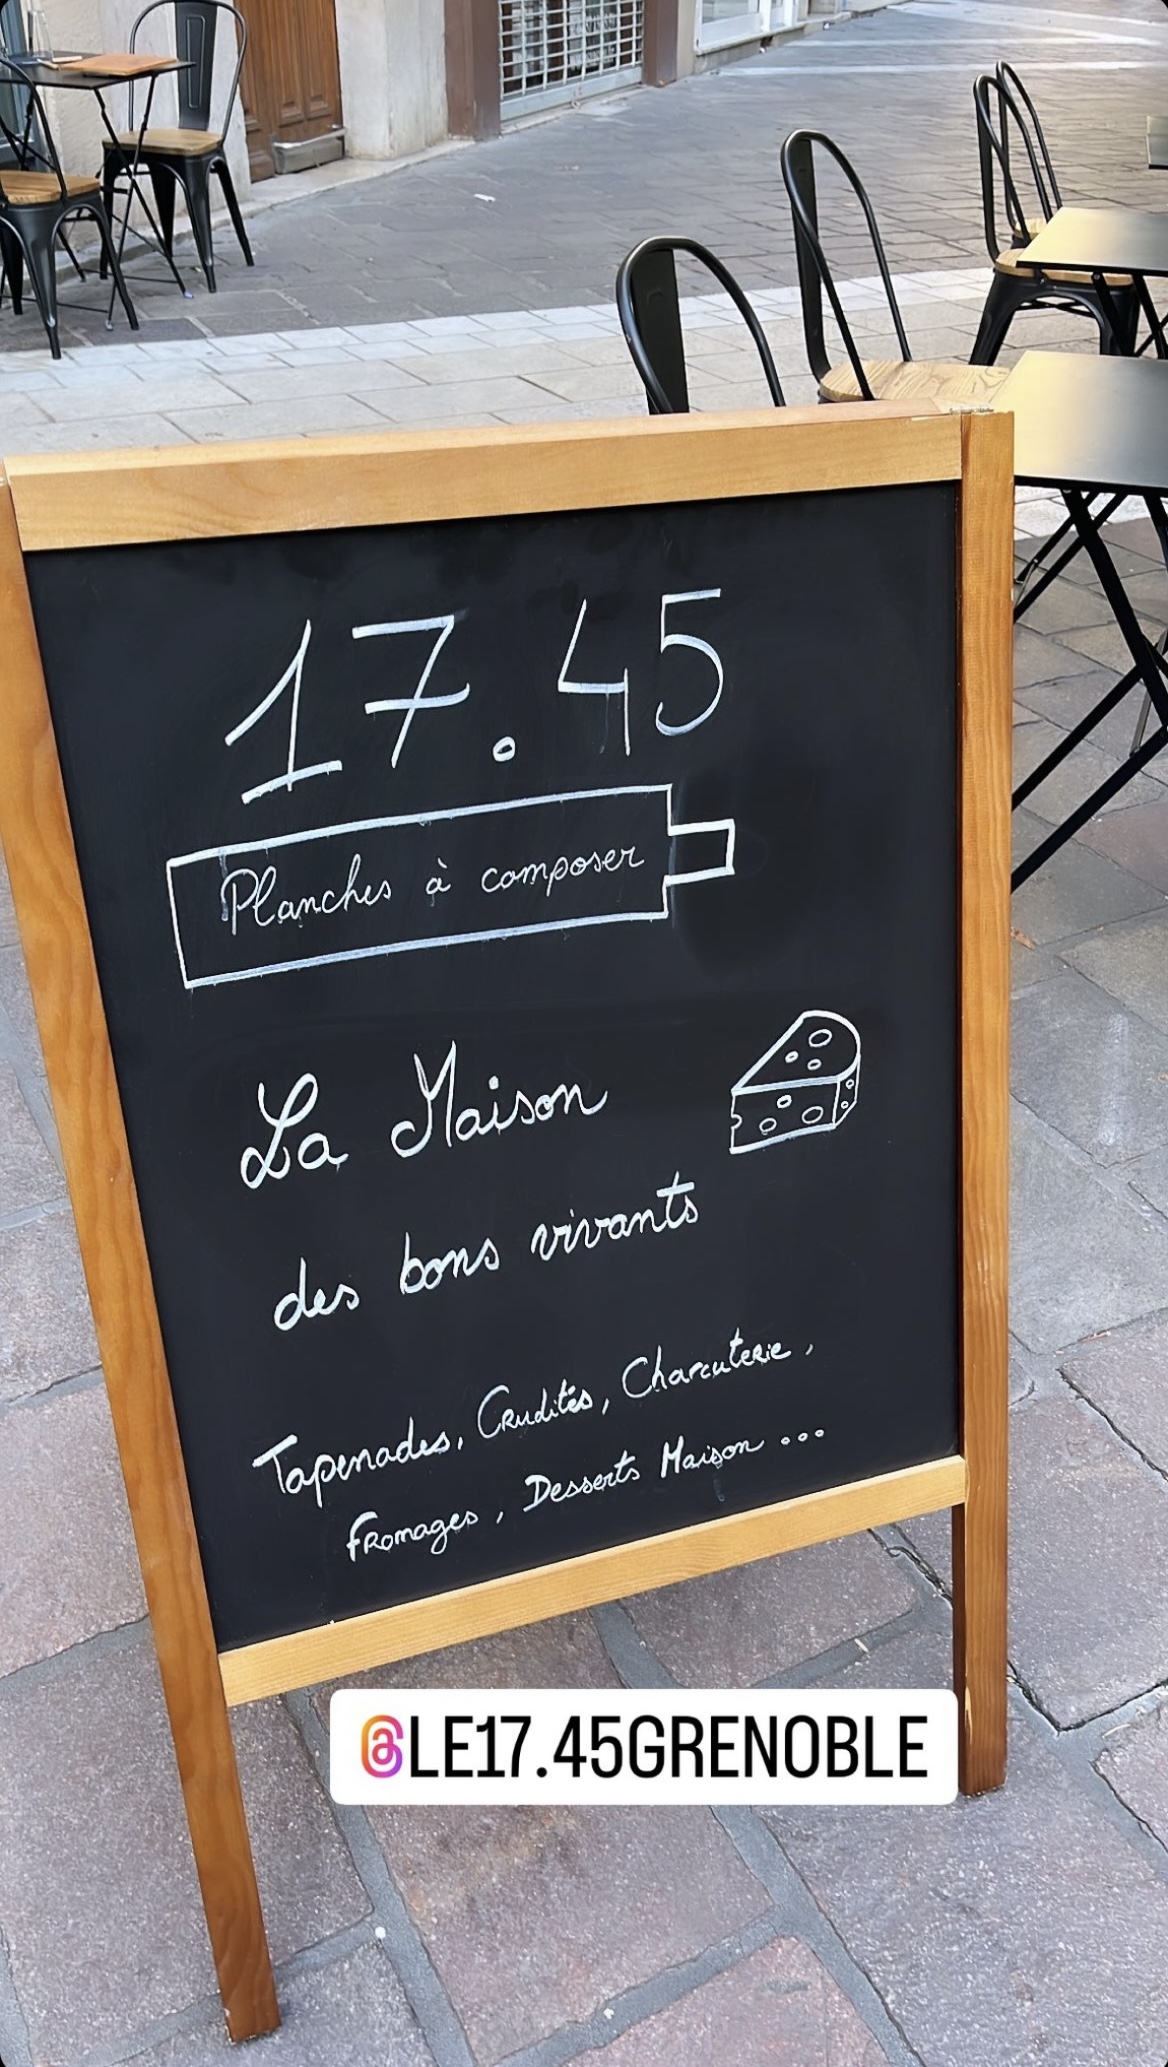 17.45
Planches à composer
La Maison
des bons vivants
Tapenades, Crudités, Charcuterie,
Fromages, Desserts Maison ...
@LE17.45GRENOBLE